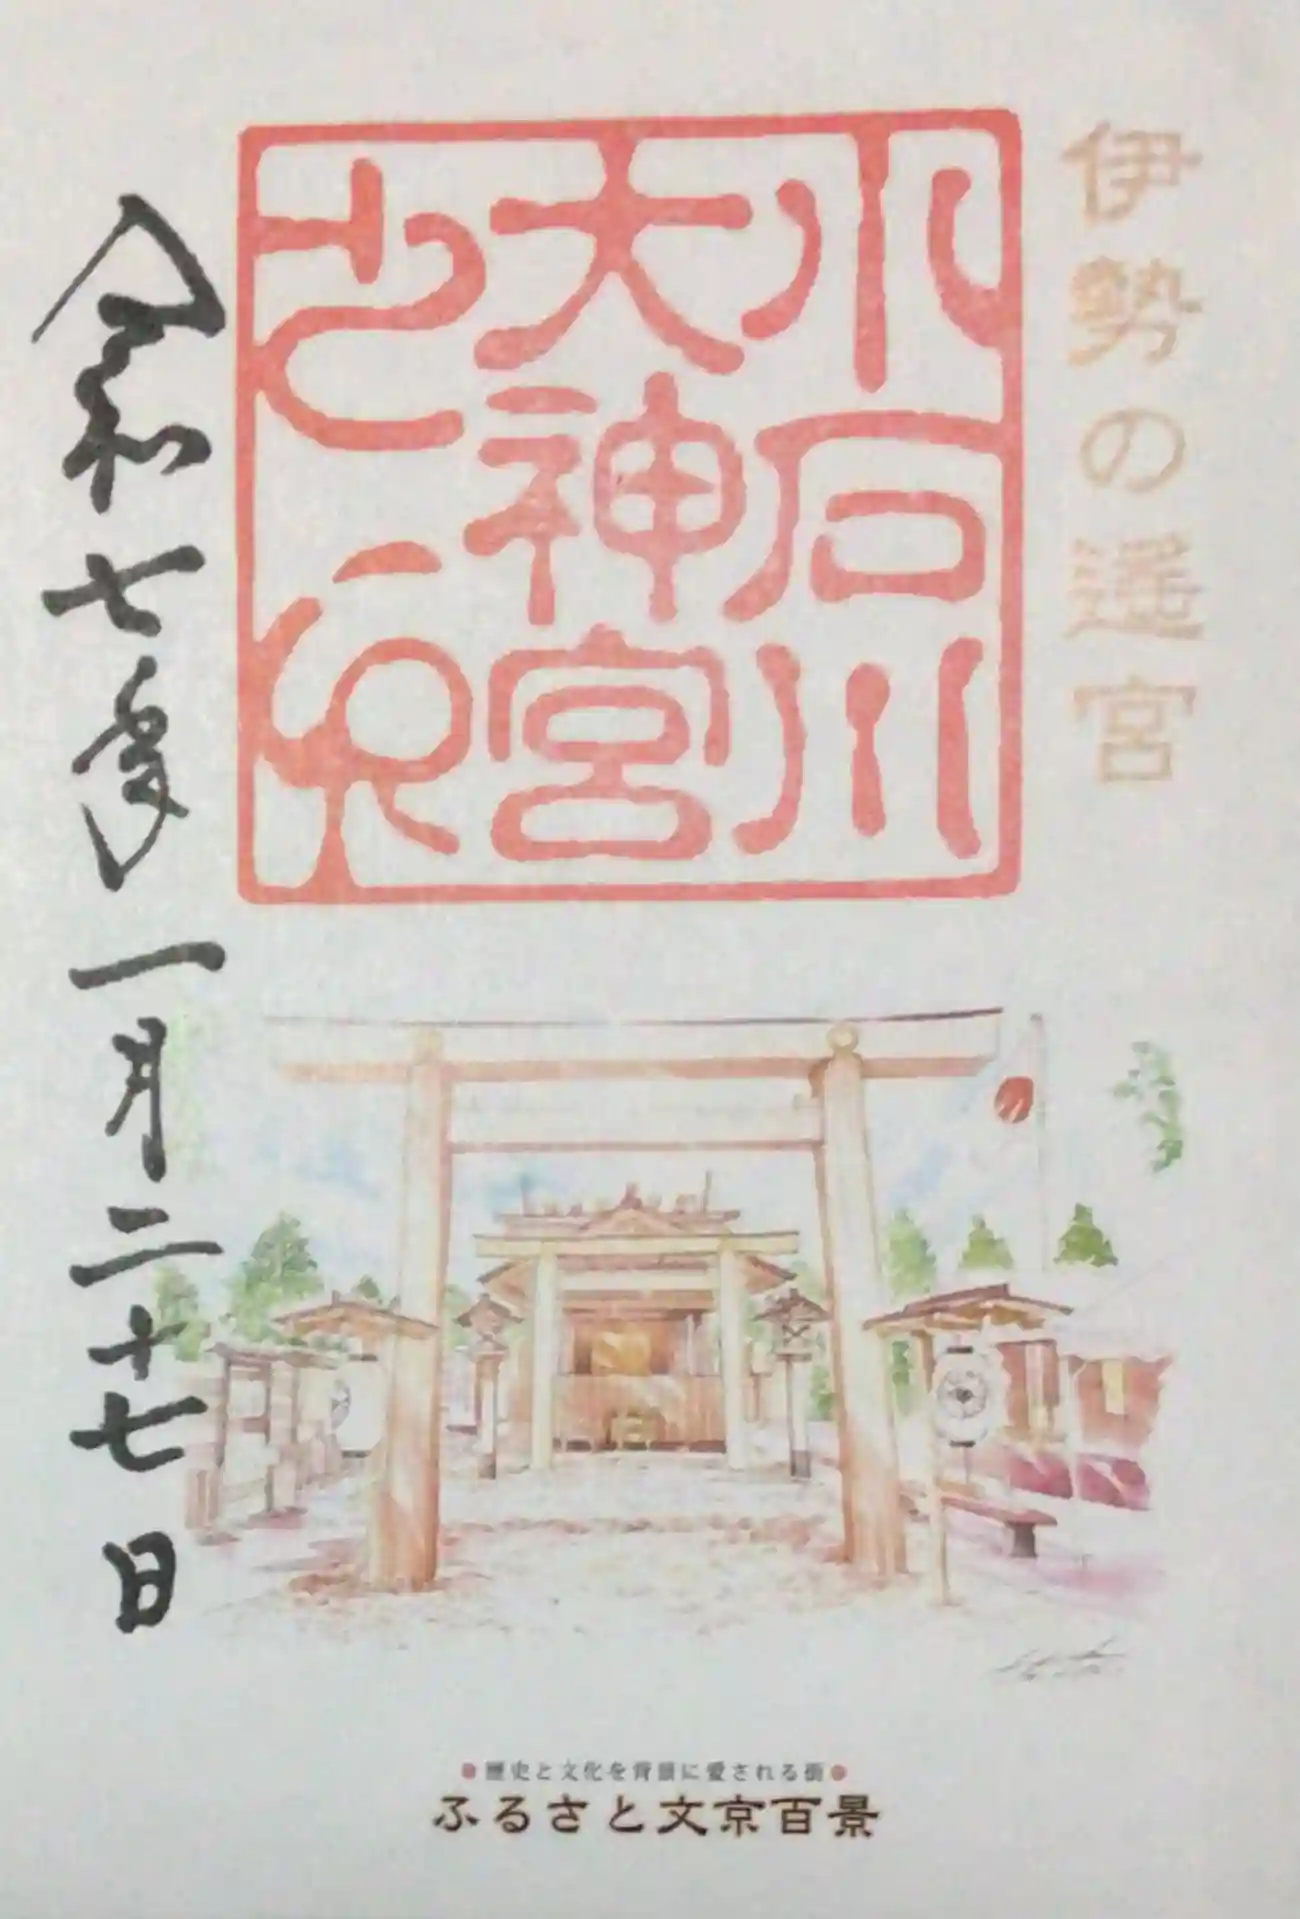 伊勢の遥宮
小石川
大神宮
之印
令和七年一月二十七日
●歴史と文化を背景に愛される街●
ふるさと文京百景